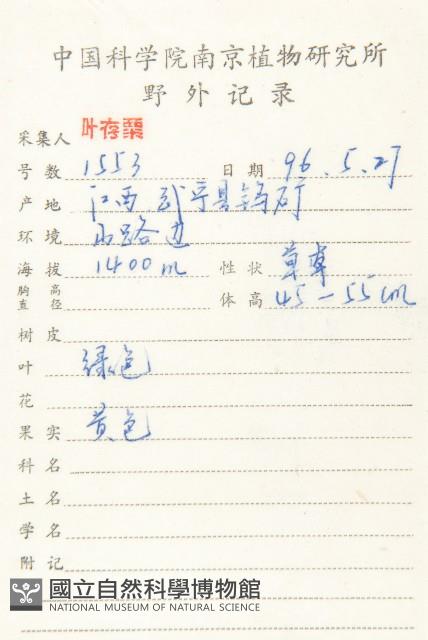 中国科学院南京植物研究所
野外记录
采集人 叶存粟
号数 1553 日期 96.5.27
产地 江西武宁县钨矿
环境 山路边
海拔 1400m 性状 草本
胸高直径 体高 45-55cm
树皮
叶 绿色
花
果实 黄色
科名
土名
学名
附记
國立自然科學博物館
NATIONAL MUSEUM OF NATURAL SCIENCE